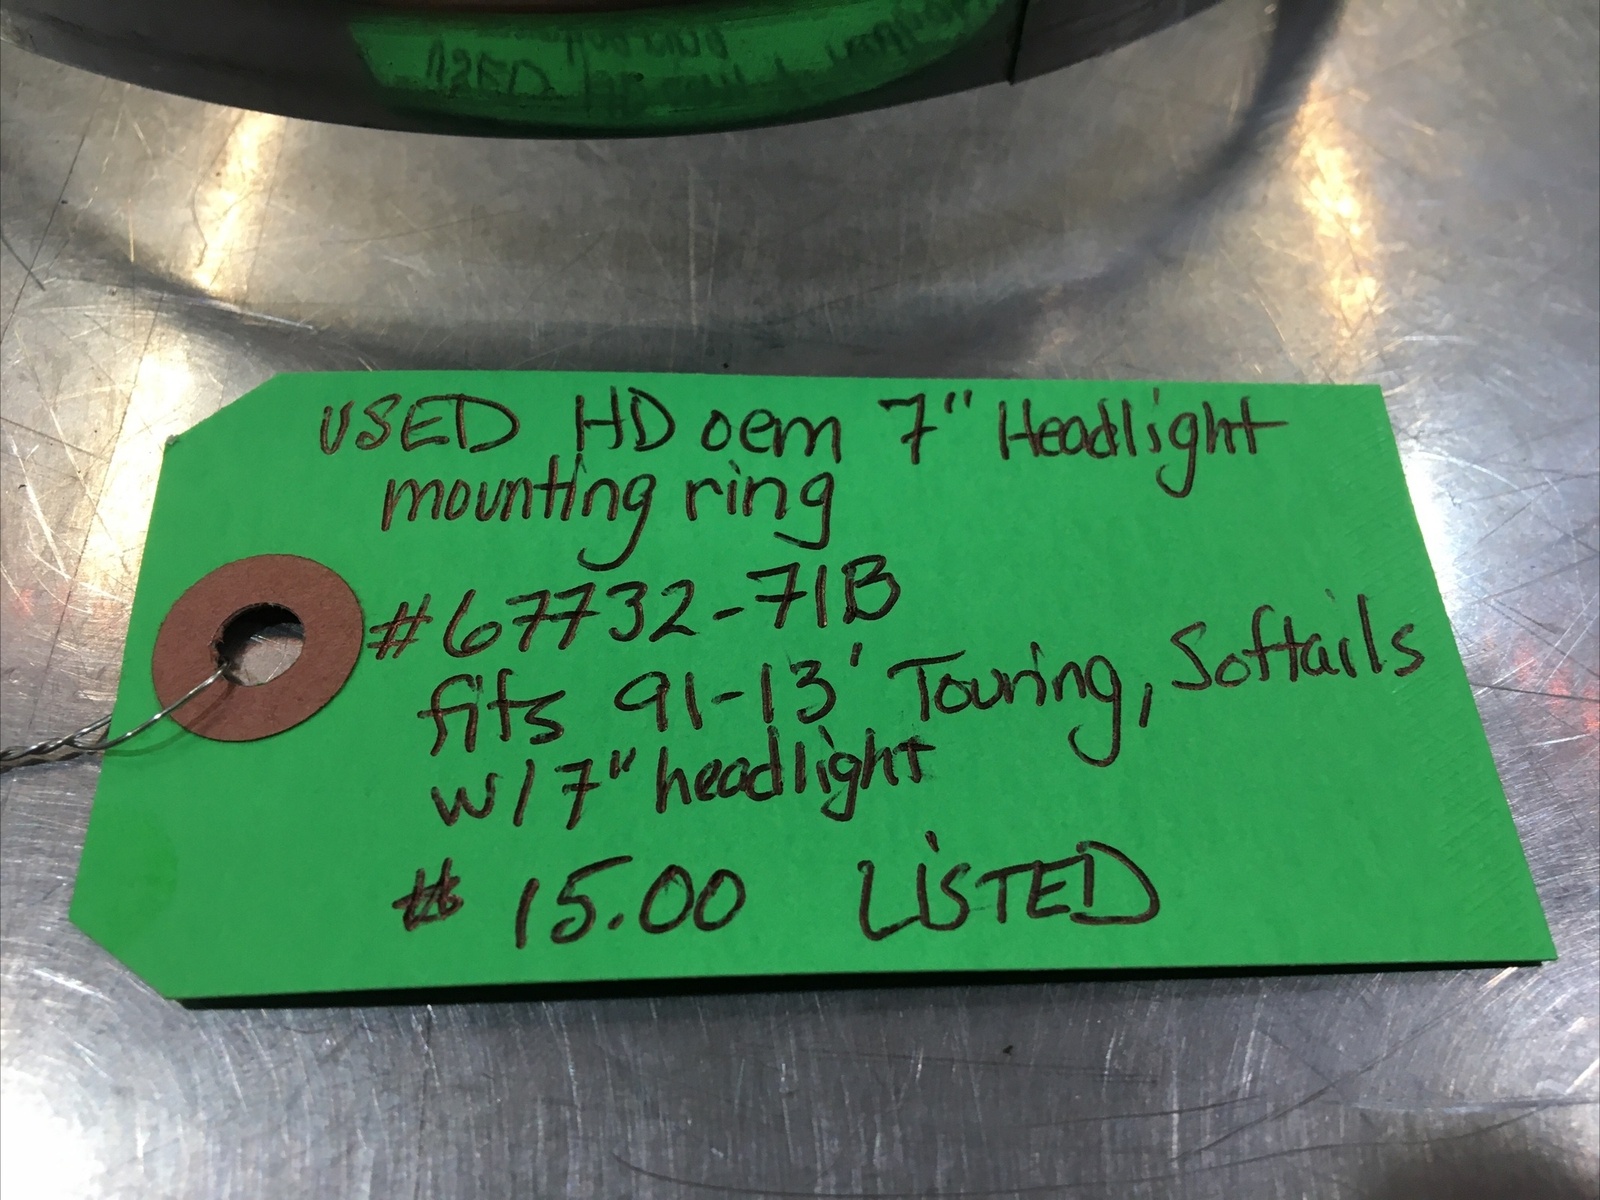 USED HD oem 7" Headlight
mounting ring
#67732-71B
fits 91-13' Touring, Softails
w/ 7" headlight
$ 15.00 LiSTED